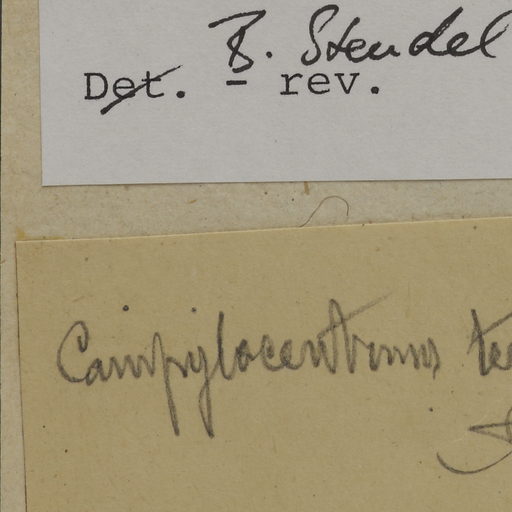 B. Steudel
Det. - rev.
Campylocentrum te